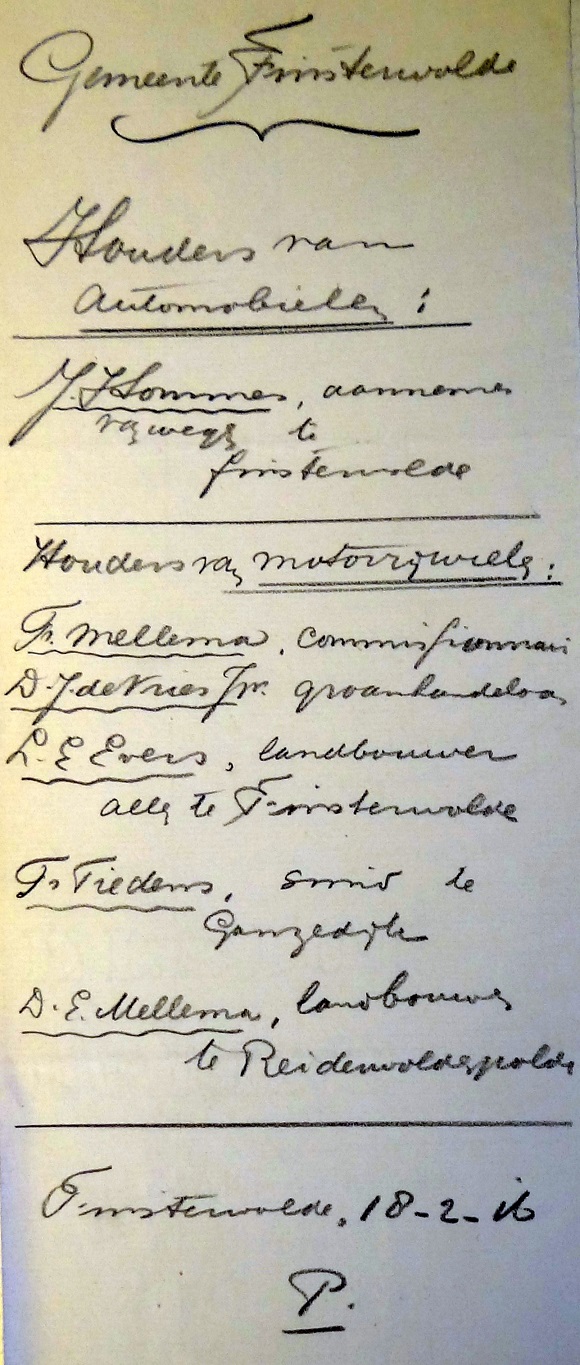 Gemeente Finsterwolde
Houders van
Automobielen :
J. Hommes, aannemer
te
Finsterwolde
Houders van motorrijwielen :
Fr. Mellema, commissionnair
D. J. de Vries Jr. graanhandelaar
L. E Evers, landbouwer
allen te Finsterwolde
Ts Tiedens, smid te
Ganzedijk
D. E. Mellema, landbouwer
te Reiderwolderpolder
Finsterwolde, 18-2-16
P.